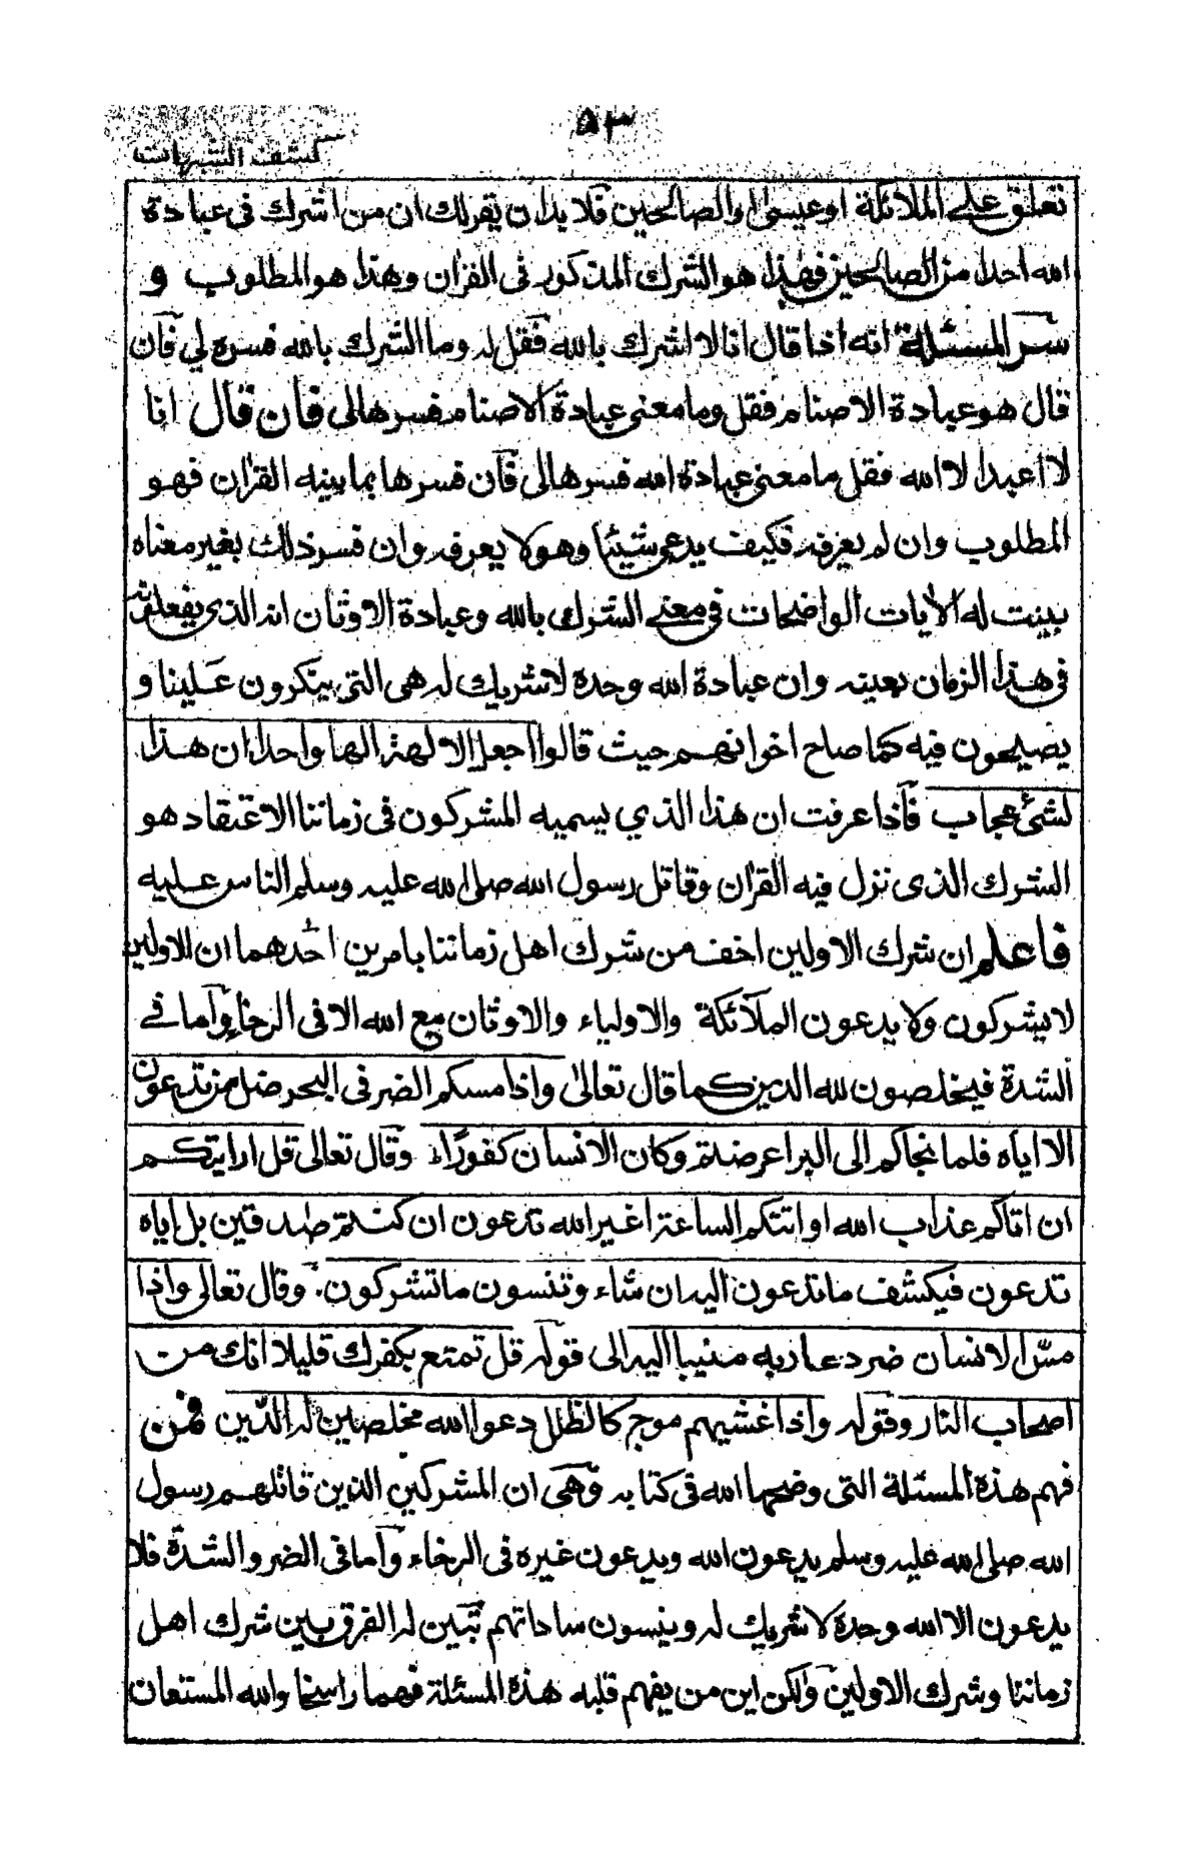 ٥٣
كشف الشبهات
تعلق على الملائكة او عيسى او الصالحين فلا بد ان يقر لك ان من اشرك فى عبادة
الله احدا من الصالحين فهذا هو الشرك المذكور فى القران وهذا هو المطلوب و
سر المسئلة انه اذا قال انا لا اشرك بالله فقل له وما الشرك بالله فسره لي فان
قال هو عبادة الاصنام فقل وما معنى عبادة الاصنام فسرها لى فان قال انا
لا اعبد الا الله فقل ما معنى عبادة الله فسرها لى فان فسرها بما بينه القران فهو
المطلوب وان لم يعرفه فكيف يدعى شيئا وهو لا يعرفه وان فسر ذلك بغير معناه
بينت له الأيات الواضحات فى معنى الشرك بالله وعبادة الاوثان انه الذى يفعلونه
فى هذا الزمان بعينه وان عبادة الله وحده لا شريك له هى التى ينكرون علينا و
يصيحون فيه كما صاح اخوانهم حيث قالوا اجعل الالهة الها واحدا ان هذا
لشئ عجاب فاذا عرفت ان هذا الذي يسميه المشركون فى زماننا الاعتقاد هو
الشرك الذى نزل فيه القران وقاتل رسول الله صلى الله عليه وسلم الناس عليه
فاعلم ان شرك الاولين اخف من شرك اهل زماننا بامرين احدهما ان الاولين
لا يشركون ولا يدعون الملآئكة والاولياء والاوثان مع الله الا فى الرخاء وآما فے
الشدة فيخلصون لله الدين كما قال تعالىٰ واذا مسكم الضر فى البحر ضل من تدعون
الا اياه فلما نجاكم الى البر اعرضتم وكان الانسان كفورًا وقال تعالى قل ارايتكم
ان اتاكم عذاب الله او اتتكم الساعة اغير الله تدعون ان كنتم صٰدقين بل اياه
تدعون فيكشف ما تدعون اليه ان شاء وتنسون ما تشركون وقال تعالى واذا
مسّ الانسان ضر دعا ربه منيبا اليه الى قوله قل تمتع بكفرك قليلا انك من
اصحاب النار وقوله واذا غشيهم موج كالظلل دعوا الله مخلصين له الدّين فمن
فهم هذه المسئلة التى وضحها الله فى كتابه وهى ان المشركين الذين قاتلهم رسول
الله صلى الله عليه وسلم يدعون الله ويدعون غيره فى الرخاء وآما فى الضر والشدّة فلا
يدعون الا الله وحده لا شريك له وينسون ساداتهم تبين له الفرق بين شرك اهل
زماننا وشرك الاولين ولكن اين من يفهم قلبه هذه المسئلة فهما راسخا والله المستعان